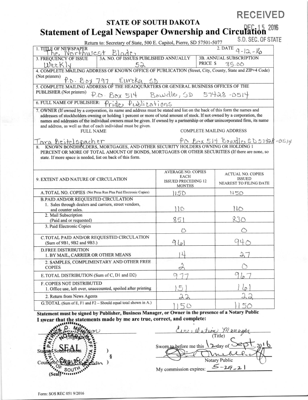 RECEIVED
STATE OF SOUTH DAKOTA
DEC 15 2016
Statement of Legal Newspaper Ownership and Circulation
S.D. SEC. OF STATE
Return to: Secretary of State, 500 E. Capitol, Pierre, SD 57501-5077
1. TITLE OF NEWSPAPER
The Northwest Blade
2. DATE
9-12-16
3. FREQUENCY OF ISSUE
Weekly
3A. NO. OF ISSUES PUBLISHED ANNUALLY
52
3B. ANNUAL SUBSCRIPTION
PRICE $ 35.00
4. COMPLETE MAILING ADDRESS OF KNOWN OFFICE OF PUBLICATION (Street, City, County, State and ZIP+4 Code)
(Not printers)
P.O. Box 797 Eureka SD
5. COMPLETE MAILING ADDRESS OF THE HEADQUARTERS OF GENERAL BUSINESS OFFICES OF THE
PUBLISHER (Not printer)
P.O. Box 514 Bowdle, SD 57428-0514
6. FULL NAME OF PUBLISHER:
Prider Publications
7. OWNER (If owned by a corporation, its name and address must be stated and
FULL NAME
COMPLETE MAILING ADDRESS
Tara Beitelspacher
PO Box 514 Bowdle, SD 57428-0514
8. KNOWN BONDHOLDERS, MORTGAGEES, AND OTHER SECURITY HOLDERS OWNING OR HOLDING 1
PERCENT OR MORE OF TOTAL AMOUNT OF BONDS, MORTGAGES OR OTHER SECURITIES (If there are none, so
state. If more space is needed, list on back of this form.
9. EXTENT AND NATURE OF CIRCULATION
AVERAGE NO. COPIES
EACH
ISSUED PRECEDING 12
MONTHS
ACTUAL NO. COPIES
ISSUED
NEAREST TO FILING DATE
A. TOTAL NO. COPIES (Net Press Run Plus Paid Electronic Copies)
1150
1150
B. PAID AND/OR REQUESTED CIRCULATION
1. Sales through dealers and carriers, street vendors,
and counter sales.
110
110
2. Mail Subscription
(Paid and or requested)
851
830
3. Paid Electronic Copies
0
0
C. TOTAL PAID AND/OR REQUESTED CIRCULATION
(Sum of 9B1, 9B2 and 9B3.)
961
940
D. FREE DISTRIBUTION
1. BY MAIL, CARRIER OR OTHER MEANS
14
27
2. SAMPLES, COMPLIMENTARY AND OTHER FREE
COPIES
2
0
E. TOTAL DISTRIBUTION (Sum of C, D1 and D2)
977
967
F. COPIES NOT DISTRIBUTED
1. Office use, left over, unaccounted, spoiled after printing
151
161
2. Return from News Agents
22
22
G. TOTAL (Sum of E, F1 and F2 - Should equal total shown in A)
1150
1150
Statement must be signed by Publisher, Business Manager, or Owner in the presence of a Notary Public
I swear that the statements made by me are true, correct, and complete:
Circulation Manager
(Title)
Sworn to before me this 12 day of Sept, 2016
Notary Public
My commission expires: 5-29-21
SEAL
Form: SOS REC 051 9/2016